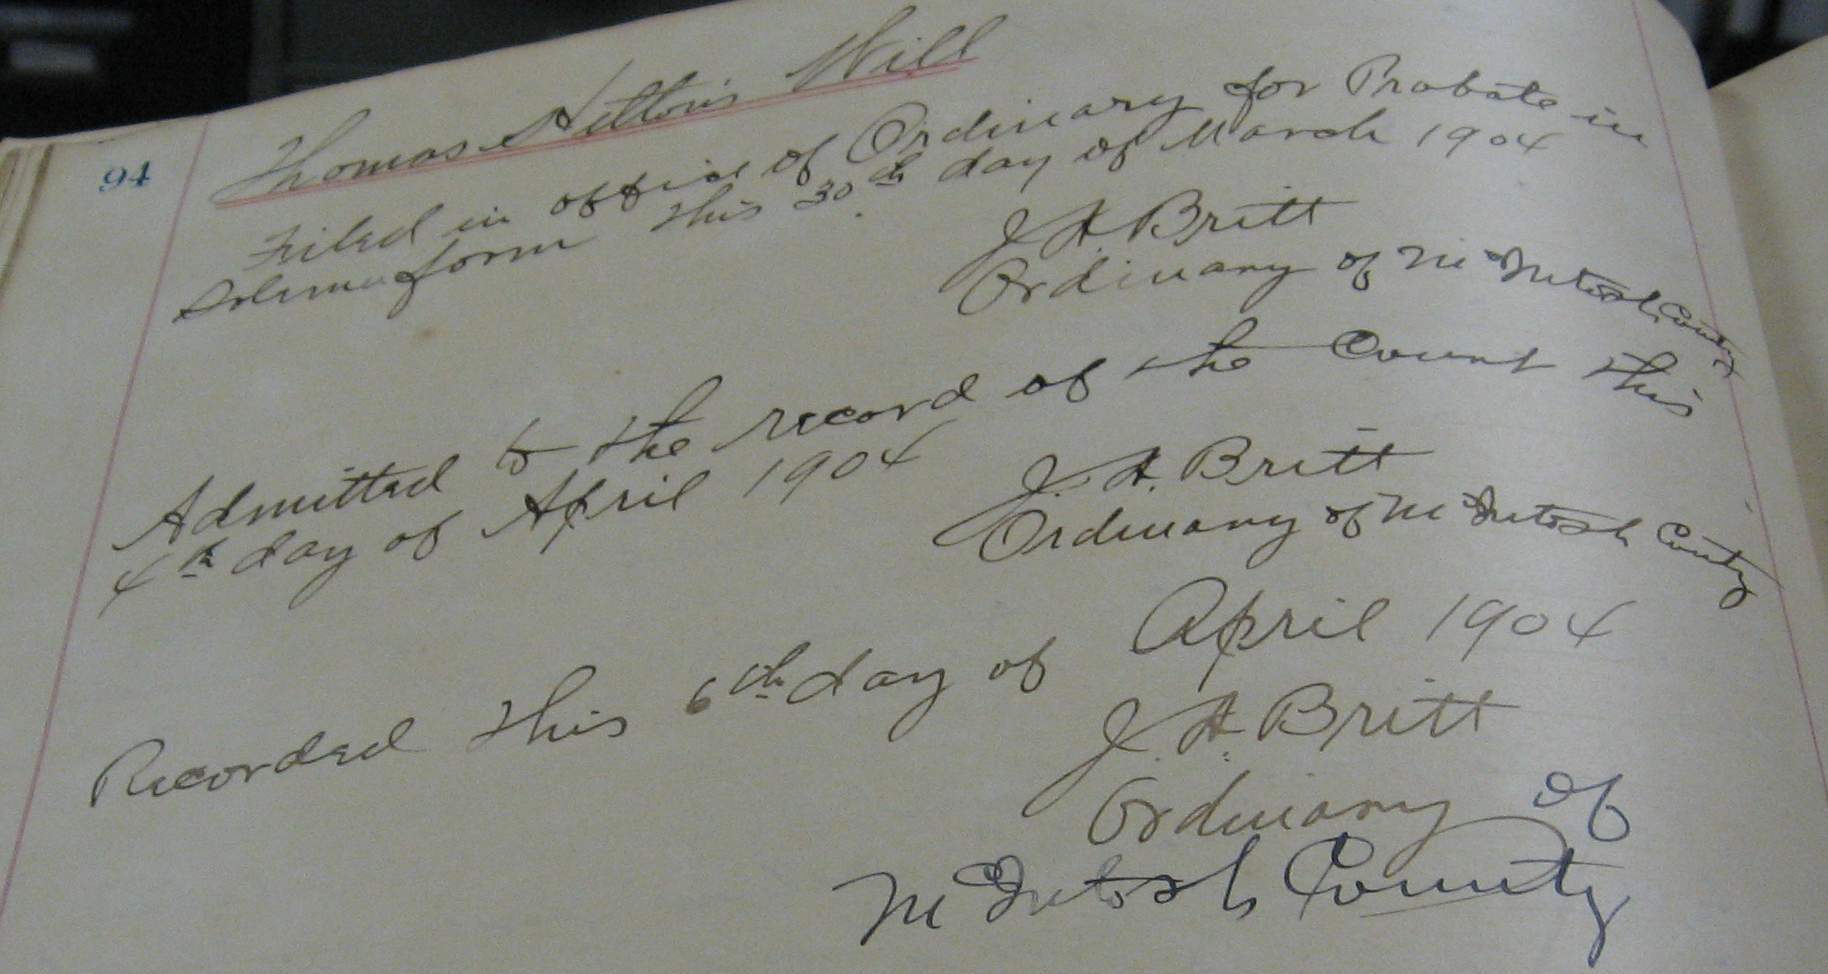 94
Thomas Hilton's Will
Filed in office of Ordinary for Probate in
Solemn form this 30th day of March 1904
J. H. Britt
Ordinary of McIntosh County
Admitted to the record of the Court this
4th day of April 1904
J. H. Britt
Ordinary of McIntosh County
Recorded this 6th day of April 1904
J. H. Britt
Ordinary of
McIntosh County